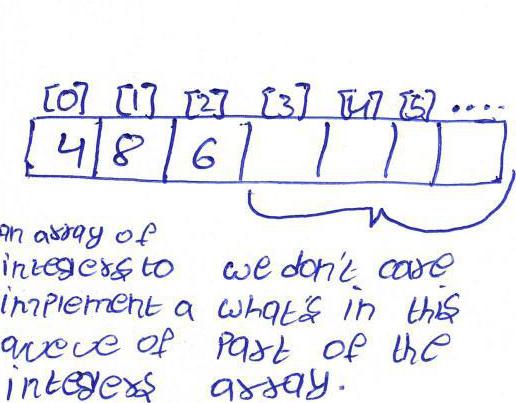 [0] [1] [2] [3] [4] [5] ....
4 8 6
an array of
integers to
implement a
queue of
integers
we don't care
what's in this
part of the
array.